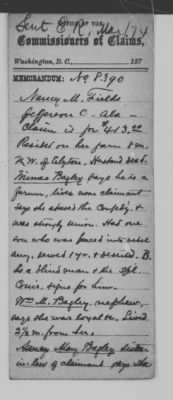 Sent E.R. Mar/74
OFFICE OF THE
Commissioners of Claims,
Washington, D. C., 187
MEMORANDUM: No 8390
Nancy M. Fields
Jefferson C - Ala -
Claim is for 413.22
Resides on her farm 8 m.
N.W. of Elyton. Husband dead.
Bagley says he is a
farmer, lives near claimant
says she abused the Confedy &
was strongly union. Had one
son who was forced into rebel
army, served 1 yr. & deserted. B.
is a blind man & the spl.
Com. signs for him.
Wm. M. Bagley, nephew,
says she was loyal &c. Lived
2½ m. from her.
Nancy Mary Bagley sister-
in-law of claimant says she